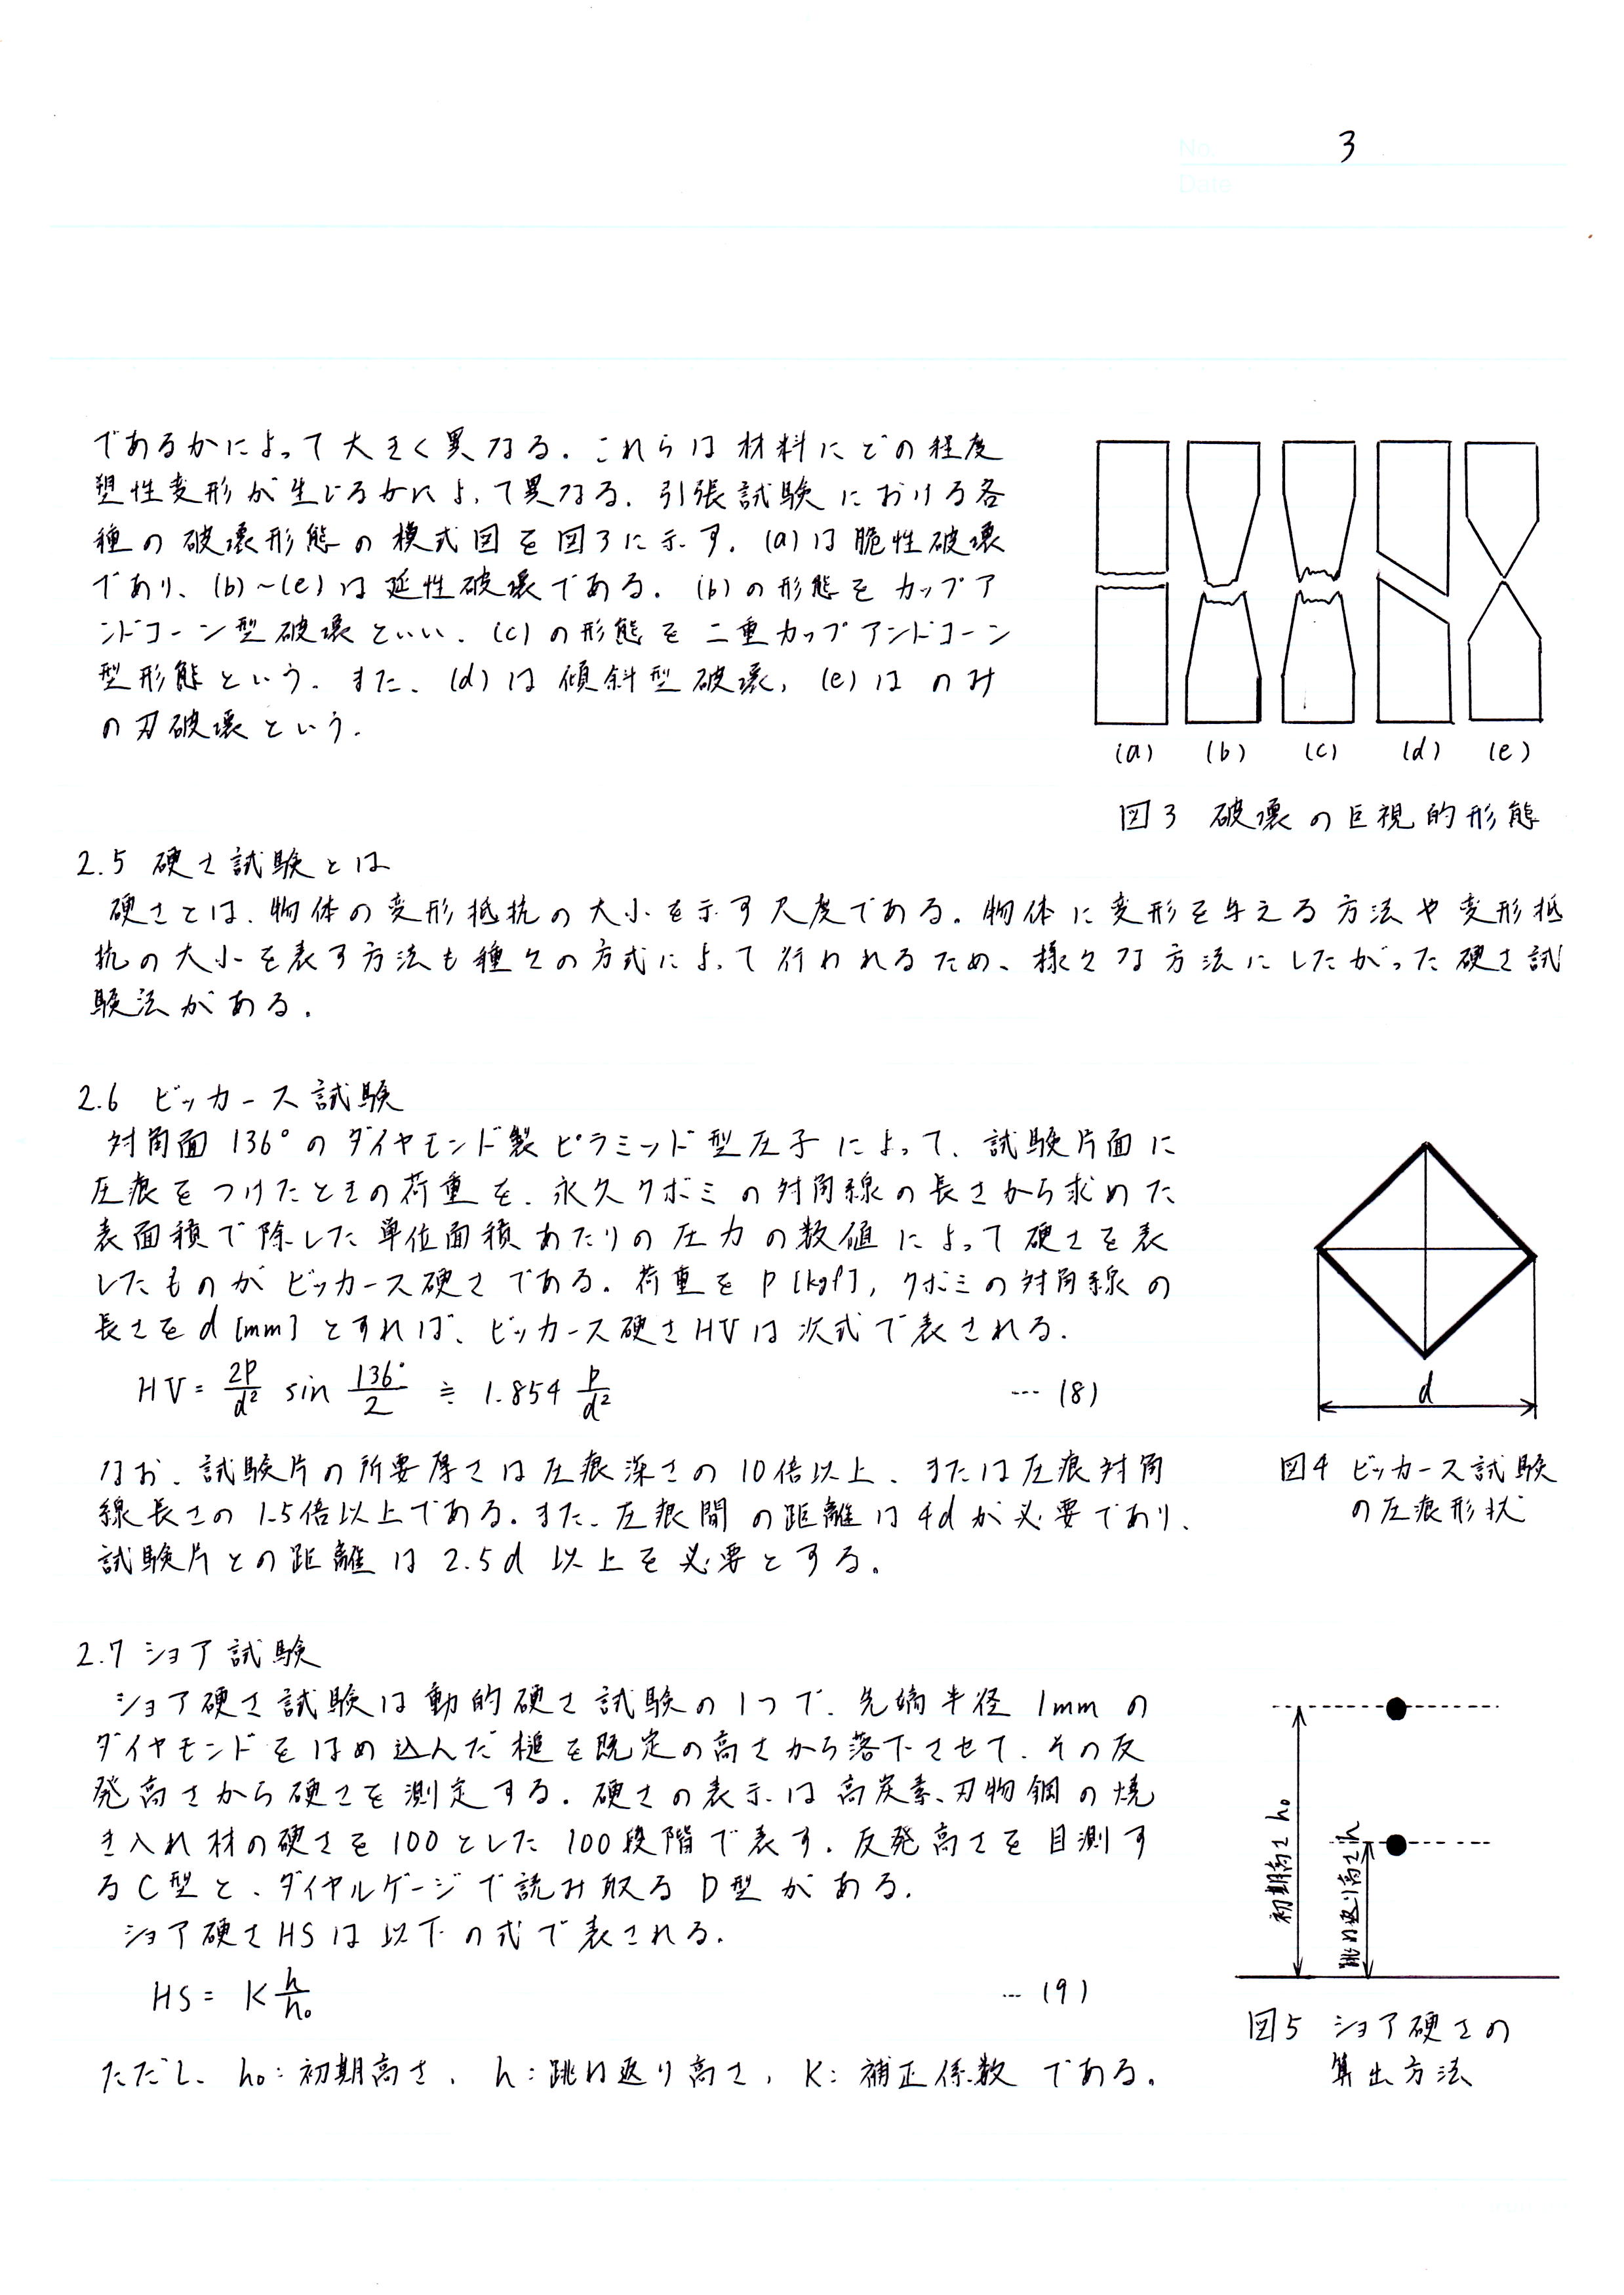 No.
3
Date
であるかによって大きく異なる. これらは材料にどの程度
塑性変形が生じるかによって異なる. 引張試験における各
種の破壊形態の模式図を図3に示す. (a)は脆性破壊
であり、(b)~(e)は延性破壊である. (b)の形態をカップア
ンドコーン型破壊といい、(c)の形態を二重カップアンドコーン
型形態という. また、(d)は傾斜型破壊, (e)はのみ
の刃破壊という.
(a) (b) (c) (d) (e)
図3 破壊の巨視的形態
2.5 硬さ試験とは
硬さとは、物体の変形抵抗の大小を示す尺度である. 物体に変形を与える方法や変形抵
抗の大小を表す方法も種々の方式によって行われるため、様々な方法にしたがった硬さ試
験法がある.
2.6 ビッカース試験
対角面136°のダイヤモンド製ピラミッド型圧子によって、試験片面に
圧痕をつけたときの荷重を、永久クボミの対角線の長さから求めた
表面積で除した単位面積あたりの圧力の数値によって硬さを表
したものがビッカース硬さである. 荷重をP[kgf], クボミの対角線の
長さをd[mm]とすれば、ビッカース硬さHVは次式で表される.
HV = 2P/d² sin 136°/2 ≒ 1.854 P/d² … (8)
d
図4 ビッカース試験
の圧痕形状
なお、試験片の所要厚さは圧痕深さの10倍以上、または圧痕対角
線長さの1.5倍以上である. また、圧痕間の距離は4dが必要であり、
試験片との距離は2.5d以上を必要とする.
2.7 ショア試験
ショア硬さ試験は動的硬さ試験の1つで、先端半径1mmの
ダイヤモンドをはめ込んだ槌を既定の高さから落下させて、その反
発高さから硬さを測定する. 硬さの表示は高炭素、刃物鋼の焼
き入れ材の硬さを100とした100段階で表す. 反発高さを目測す
るC型と、ダイヤルゲージで読み取るD型がある.
ショア硬さHSは以下の式で表される.
HS = K h/h₀ … (9)
ただし、h₀: 初期高さ, h: 跳ね返り高さ, K: 補正係数 である.
初期高さ h₀
跳ね返り高さ h
図5 ショア硬さの
算出方法